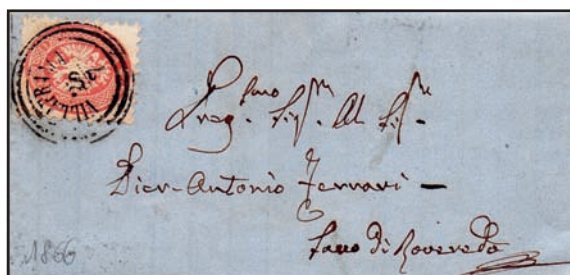 VILLAFR
Preg.mo Sig.r Al Sig.r
Pier-Antonio Ferrari -
Sacco di Roveredo
1866